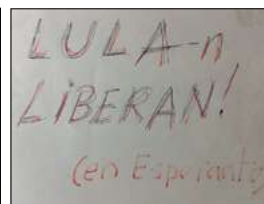 LULA-n
LIBERAN!
(en Esperanto